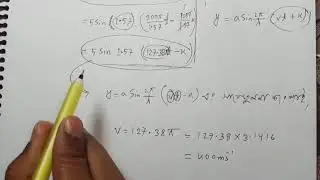 = 5 Sin (1.57 (200π/1.57 - 
y = a Sin 2π/λ (vt + x)
= 5 Sin 1.57 (127.38π - x)
y = a Sin 2π/λ (vt - x) এর
V = 127.38π = 127.38 × 3.1416
= 400ms⁻¹